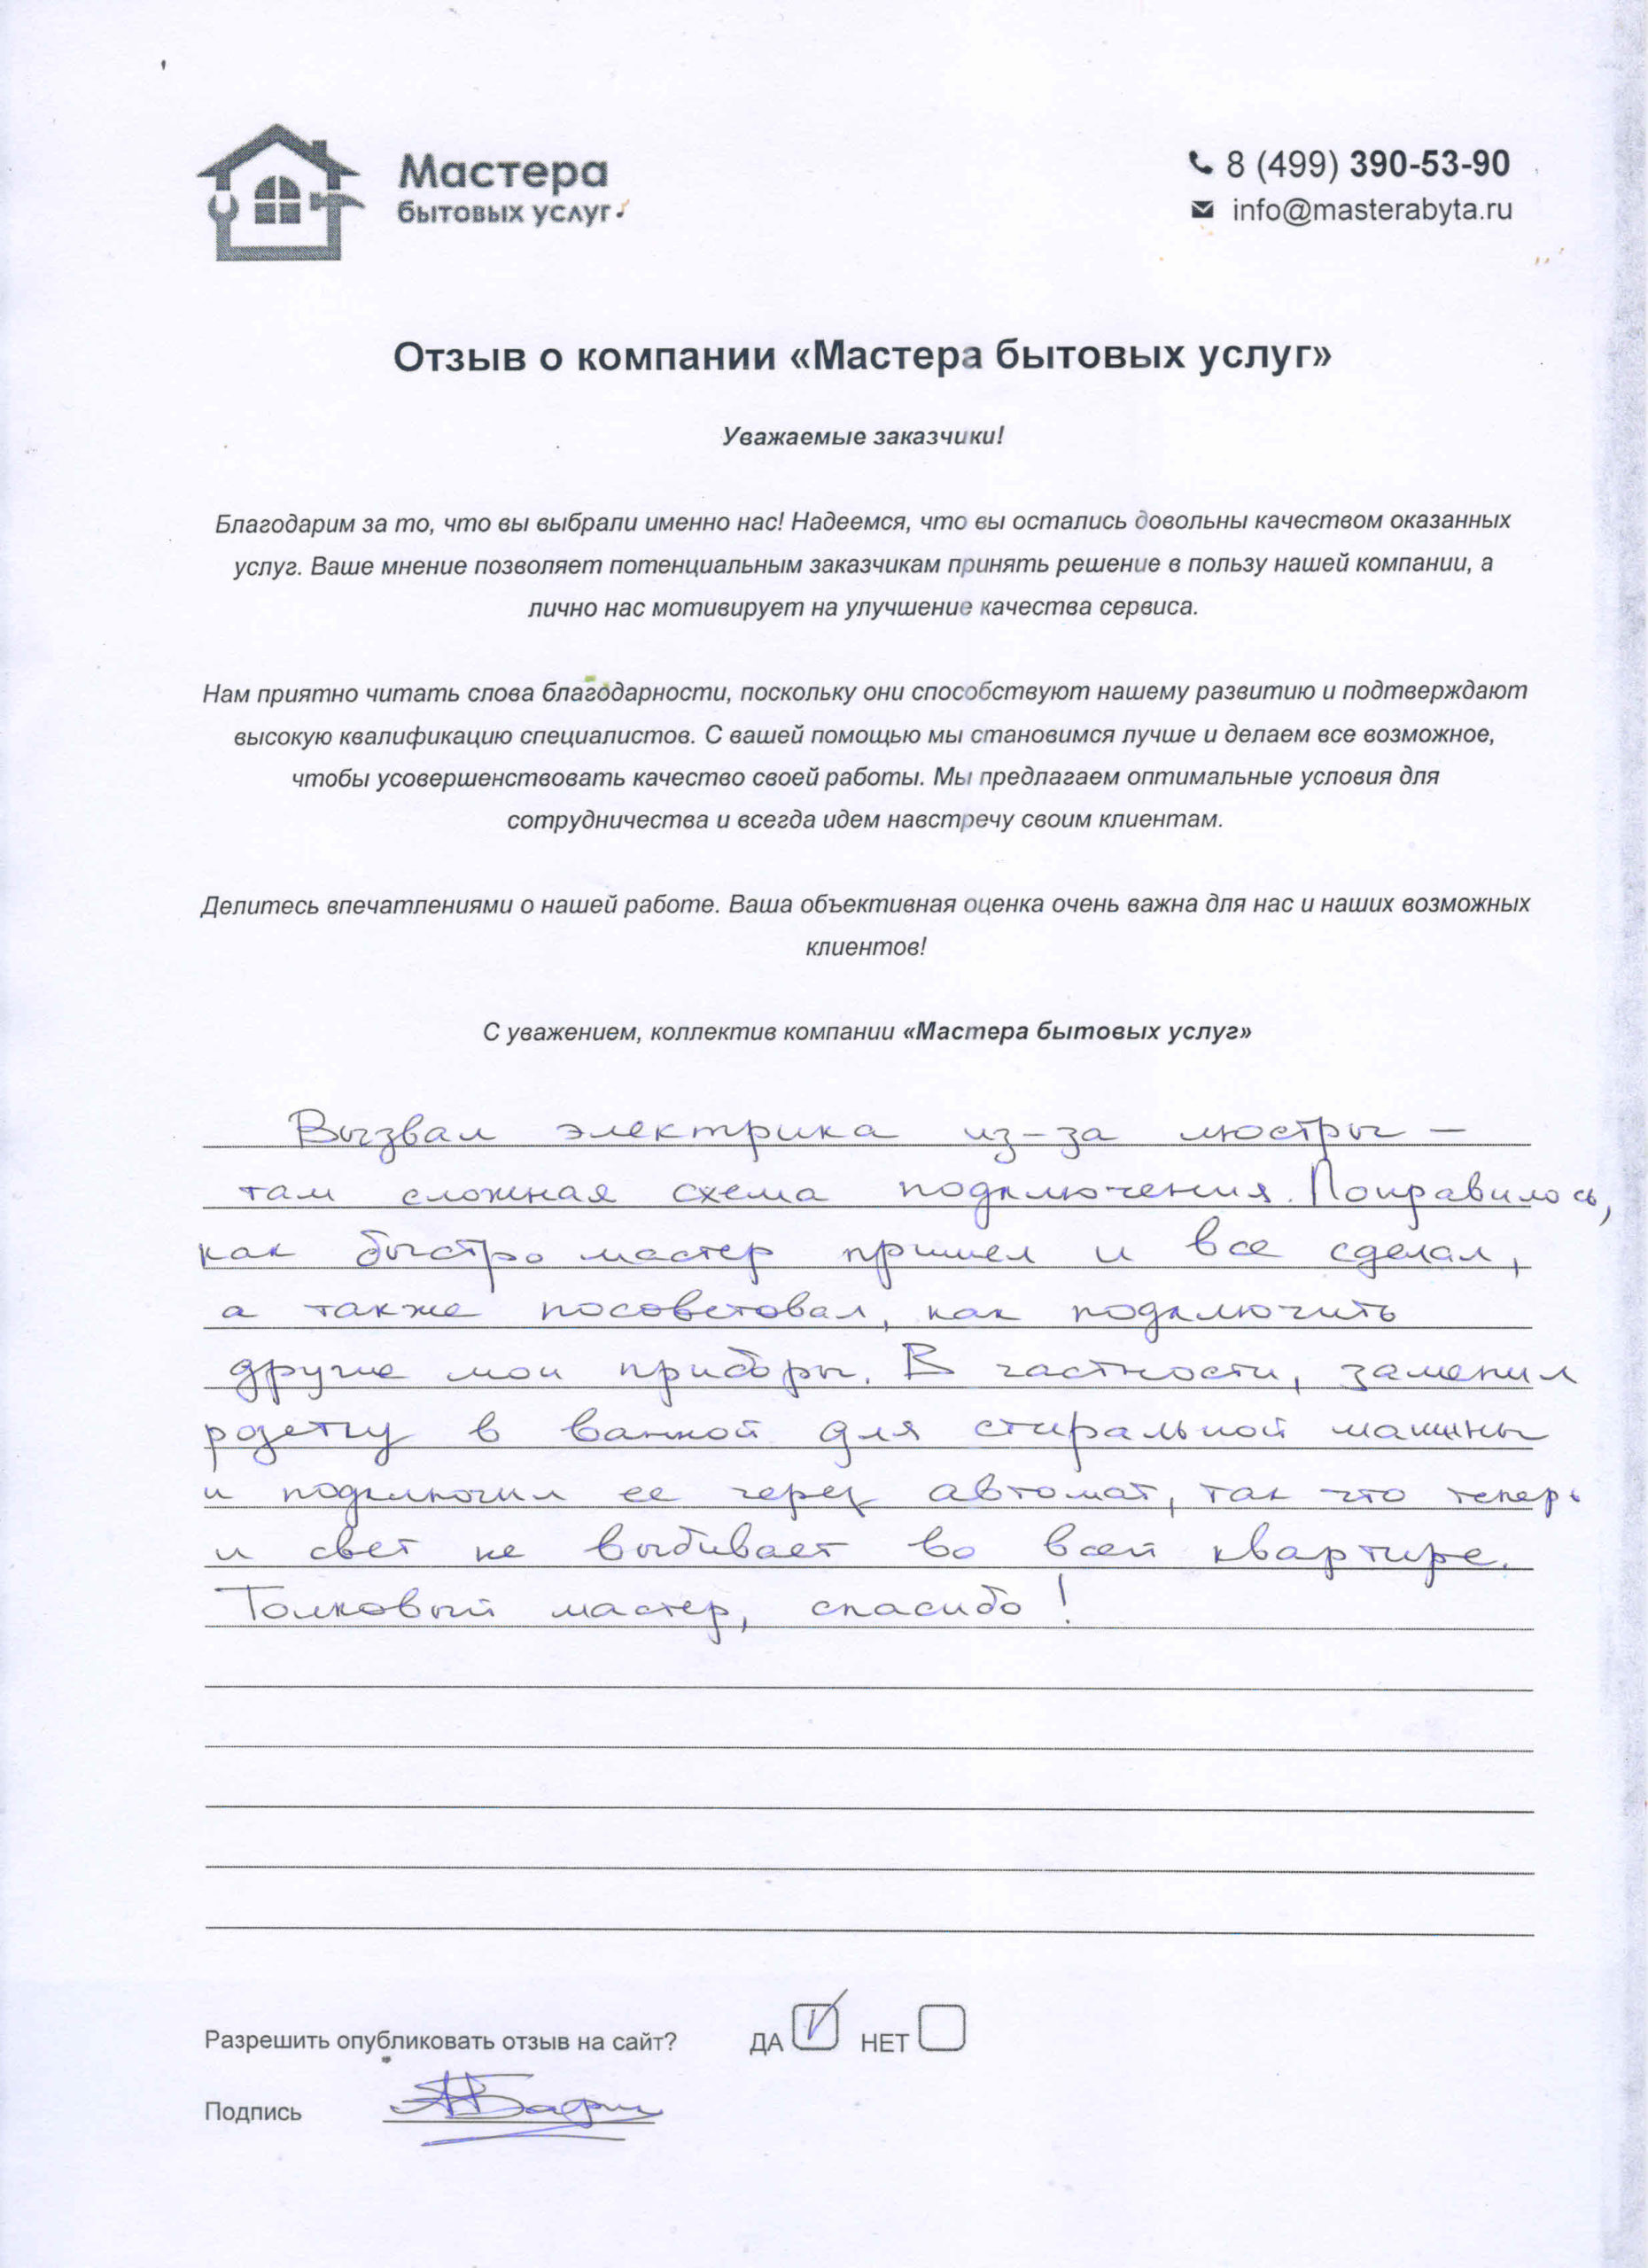 Мастера
бытовых услуг
8 (499) 390-53-90
info@masterabyta.ru
Отзыв о компании «Мастера бытовых услуг»
Уважаемые заказчики!
Благодарим за то, что вы выбрали именно нас! Надеемся, что вы остались довольны качеством оказанных
услуг. Ваше мнение позволяет потенциальным заказчикам принять решение в пользу нашей компании, а
лично нас мотивирует на улучшение качества сервиса.
Нам приятно читать слова благодарности, поскольку они способствуют нашему развитию и подтверждают
высокую квалификацию специалистов. С вашей помощью мы становимся лучше и делаем все возможное,
чтобы усовершенствовать качество своей работы. Мы предлагаем оптимальные условия для
сотрудничества и всегда идем навстречу своим клиентам.
Делитесь впечатлениями о нашей работе. Ваша объективная оценка очень важна для нас и наших возможных
клиентов!
С уважением, коллектив компании «Мастера бытовых услуг»
Вызвал электрика из-за люстры –
там сложная схема подключения. Понравилось,
как быстро мастер пришел и все сделал,
а также посоветовал, как подключить
другие мои приборы. В частности, заменил
розетку в ванной для стиральной машины
и подключил ее через автомат, так что теперь
и свет не выбивает во всей квартире.
Толковый мастер, спасибо!
Разрешить опубликовать отзыв на сайт? ДА НЕТ
Подпись